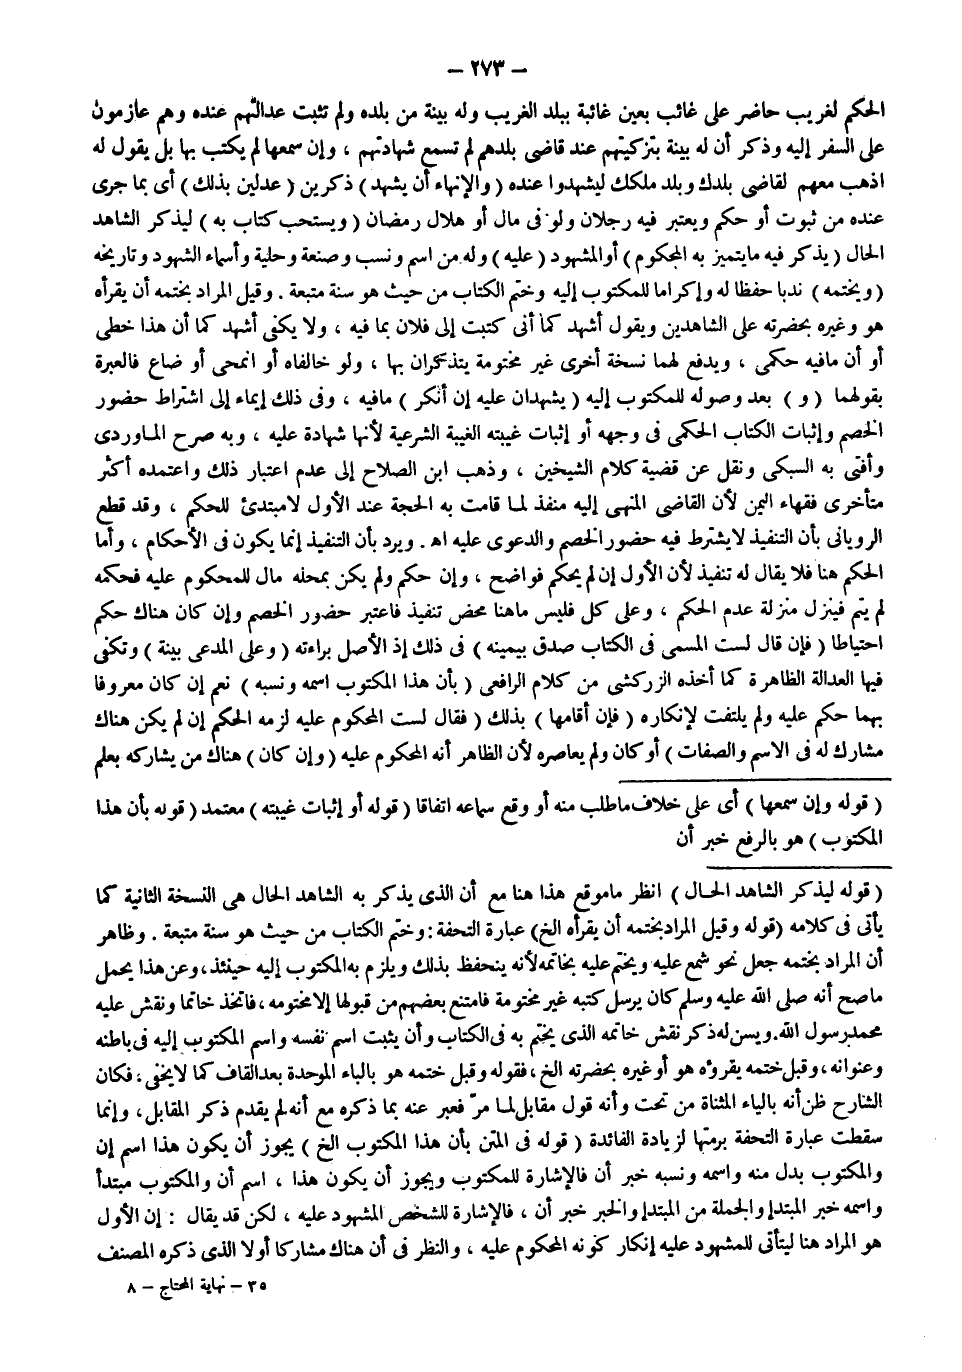 — ٢٧٣ —
الحكم لغريب حاضر على غائب بعين غائبة ببلد الغريب وله بينة من بلده ولم تثبت عدالتهم عنده وهم عازمون
على السفر إليه وذكر أن له بينة بتزكيتهم عند قاضى بلدهم لم تسمع شهادتهم ، وإن سمعها لم يكتب بها بل يقول له
اذهب معهم لقاضى بلدك وبلد ملكك ليشهدوا عنده ( والإنهاء أن يشهد ) ذكرين ( عدلين بذلك ) أى بما جرى
عنده من ثبوت أو حكم ويعتبر فيه رجلان ولو فى مال أو هلال رمضان ( ويستحب كتاب به ) ليذكر الشاهد
الحال ( يذكر فيه مايتميز به المحكوم ) أوالمشهود ( عليه ) وله من اسم ونسب وصنعة وحلية وأسماء الشهود وتاريخه
( ويختمه ) ندبا حفظا له وإكراما للمكتوب إليه وختم الكتاب من حيث هو سنة متبعة . وقيل المراد بختمه أن يقرأه
هو وغيره بحضرته على الشاهدين ويقول أشهد كما أنى كتبت إلى فلان بما فيه ، ولا يكفى أشهد كما أن هذا خطى
أو أن مافيه حكمى ، ويدفع لهما نسخة أخرى غير مختومة يتذكران بها ، ولو خالفاه أو انمحى أو ضاع فالعبرة
بقولهما ( و ) بعد وصوله للمكتوب إليه ( يشهدان عليه إن أنكر ) مافيه ، وفى ذلك إيماء إلى اشتراط حضور
الخصم وإثبات الكتاب الحكمى فى وجهه أو إثبات غيبته الغيبة الشرعية لأنها شهادة عليه ، وبه صرح الماوردى
وأفتى به السبكى ونقل عن قضية كلام الشيخين ، وذهب ابن الصلاح إلى عدم اعتبار ذلك واعتمده أكثر
متأخرى فقهاء اليمن لأن القاضى المنهى إليه منفذ لما قامت به الحجة عند الأول لامبتدئ للحكم ، وقد قطع
الرويانى بأن التنفيذ لايشترط فيه حضور الخصم والدعوى عليه اه . ويرد بأن التنفيذ إنما يكون فى الأحكام ، وأما
الحكم هنا فلا يقال له تنفيذ لأن الأول إن لم يحكم فواضح ، وإن حكم ولم يكن بمحله مال للمحكوم عليه فحكمه
لم يتم فينزل منزلة عدم الحكم ، وعلى كل فليس ماهنا محض تنفيذ فاعتبر حضور الخصم وإن كان هناك حكم
احتياطا ( فإن قال لست المسمى فى الكتاب صدق بيمينه ) فى ذلك إذ الأصل براءته ( وعلى المدعى بينة ) وتكفى
فيها العدالة الظاهرة كما أخذه الزركشى من كلام الرافعى ( بأن هذا المكتوب اسمه ونسبه ) نعم إن كان معروفا
بهما حكم عليه ولم يلتفت لإنكاره ( فإن أقامها ) بذلك ( فقال لست المحكوم عليه لزمه الحكم إن لم يكن هناك
مشارك له فى الاسم والصفات ) أو كان ولم يعاصره لأن الظاهر أنه المحكوم عليه ( وإن كان ) هناك من يشاركه بعلم
( قوله وإن سمعها ) أى على خلاف ماطلب منه أو وقع سماعه اتفاقا ( قوله أو إثبات غيبته ) معتمد ( قوله بأن هذا
المكتوب ) هو بالرفع خبر أن
( قوله ليذكر الشاهد الحال ) انظر ماموقع هذا هنا مع أن الذى يذكر به الشاهد الحال هى النسخة الثانية كما
يأتى فى كلامه ( قوله وقيل المراد بختمه أن يقرأه الخ ) عبارة التحفة : وختم الكتاب من حيث هو سنة متبعة . وظاهر
أن المراد بختمه جعل نحو شمع عليه ويختم عليه بخاتمه لأنه يتحفظ بذلك ويلزم به المكتوب إليه حينئذ ، وعن هذا يحمل
ماصح أنه صلى الله عليه وسلم كان يرسل كتبه غير مختومة فامتنع بعضهم من قبولها إلا مختومه ، فاتخذ خاتما ونقش عليه
محمد رسول الله . ويسن له ذكر نقش خاتمه الذى يختم به فى الكتاب وأن يثبت اسم نفسه واسم المكتوب إليه فى باطنه
وعنوانه ، وقبل ختمه يقرؤه هو أو غيره بحضرته الخ ، فقوله وقبل ختمه هو بالباء الموحدة بعد القاف كما لايخفى ، فكان
الشارح ظن أنه بالياء المثناة من تحت وأنه قول مقابل لما مرّ فعبر عنه بما ذكره مع أنه لم يقدم ذكر المقابل ، وإنما
سقطت عبارة التحفة برمتها لزيادة الفائدة ( قوله فى المتن بأن هذا المكتوب الخ ) يجوز أن يكون هذا اسم إن
والمكتوب بدل منه واسمه ونسبه خبر أن فالإشارة للمكتوب ويجوز أن يكون هذا ، اسم أن والمكتوب مبتدأ
واسمه خبر المبتدإ والجملة من المبتدإ والخبر خبر أن ، فالإشارة للشخص المشهود عليه ، لكن قد يقال : إن الأول
هو المراد هنا ليتأتى للمشهود عليه إنكار كونه المحكوم عليه ، والنظر فى أن هناك مشاركا أولا الذى ذكره المصنف
٣٥ – نهاية المحتاج – ٨